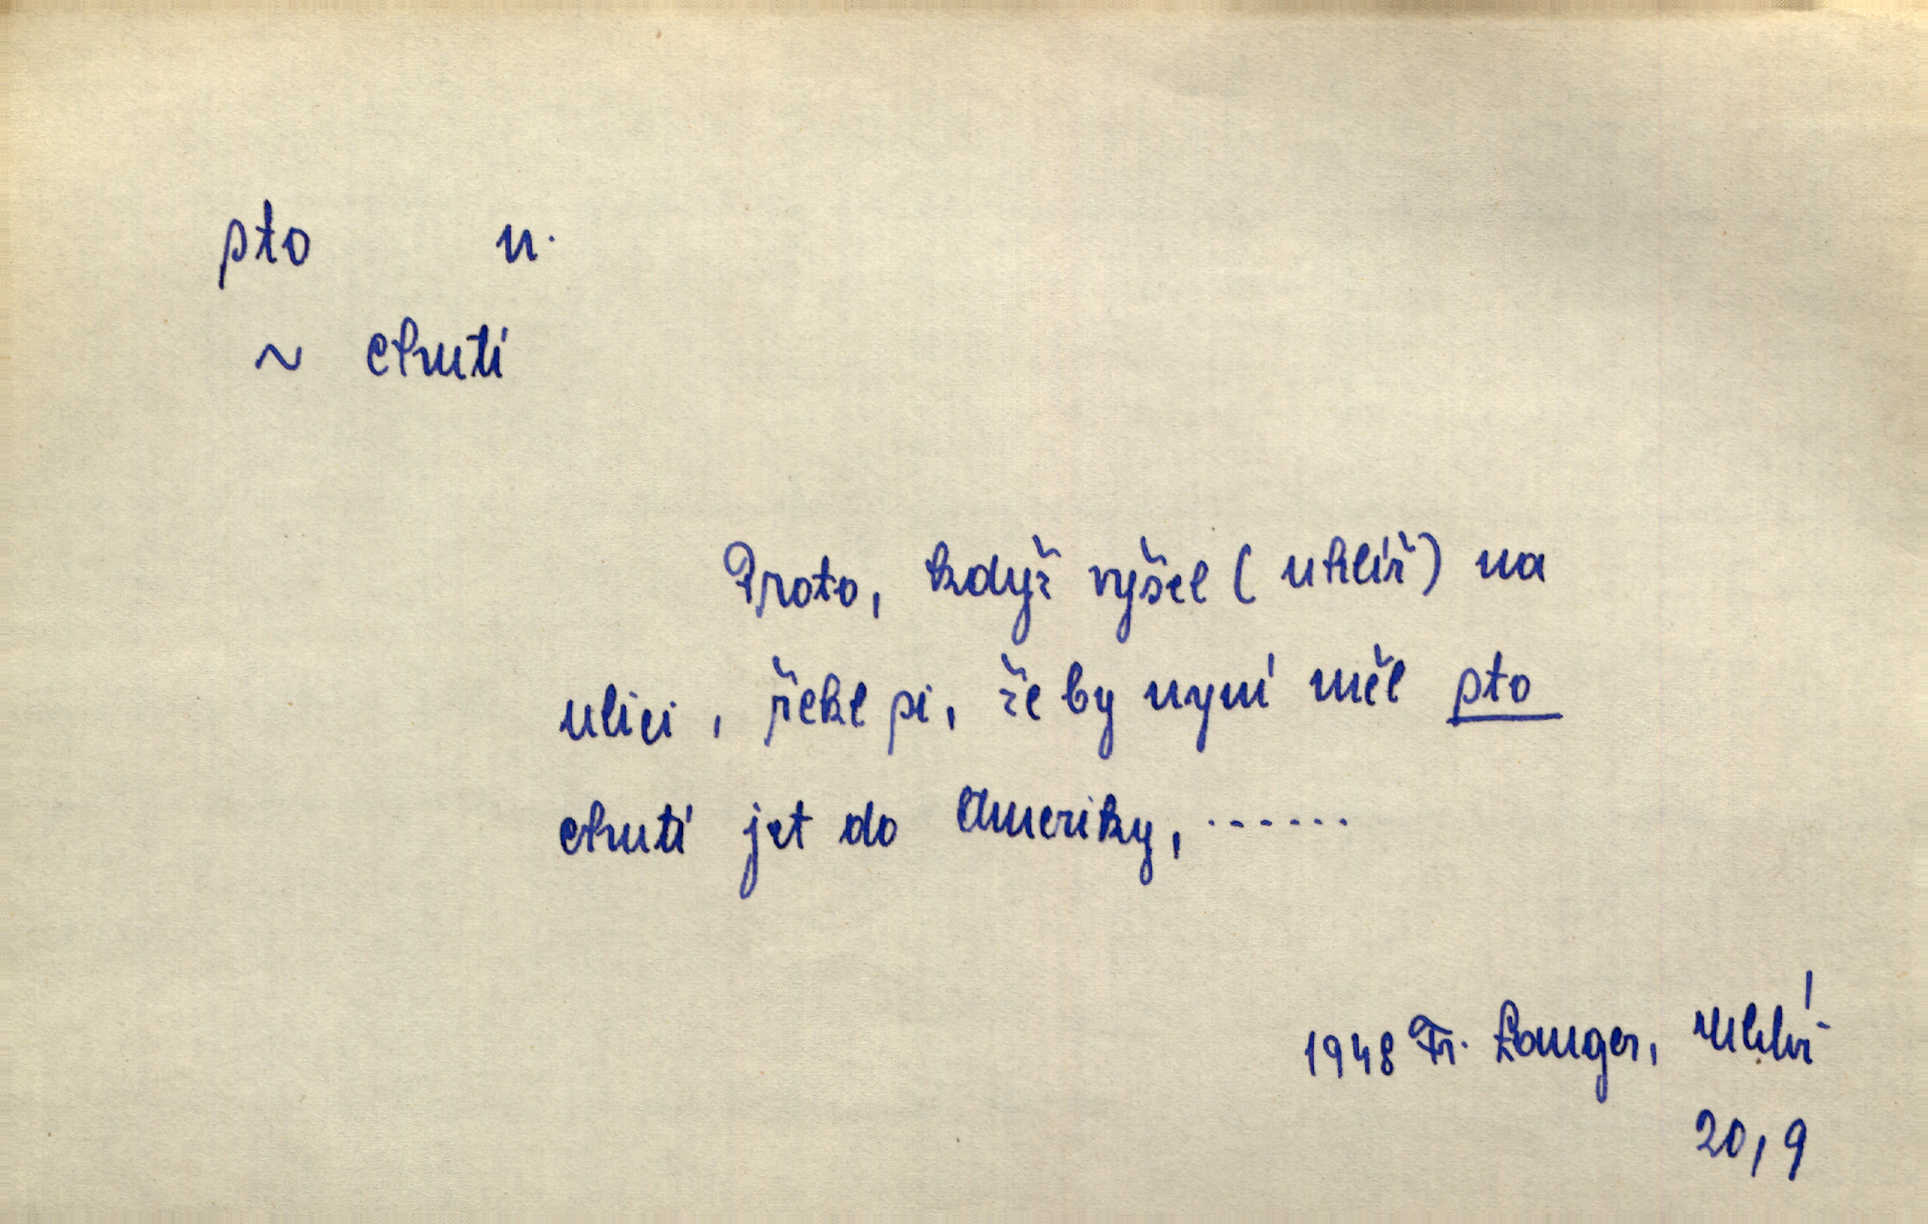 sto n.
~ chutí
Proto, když vyšel (uhlíř) na
ulici, řekl si, že by nyní měl sto
chutí jet do Ameriky, ......
1948 Fr. Langer, Uhlíř
20, 9